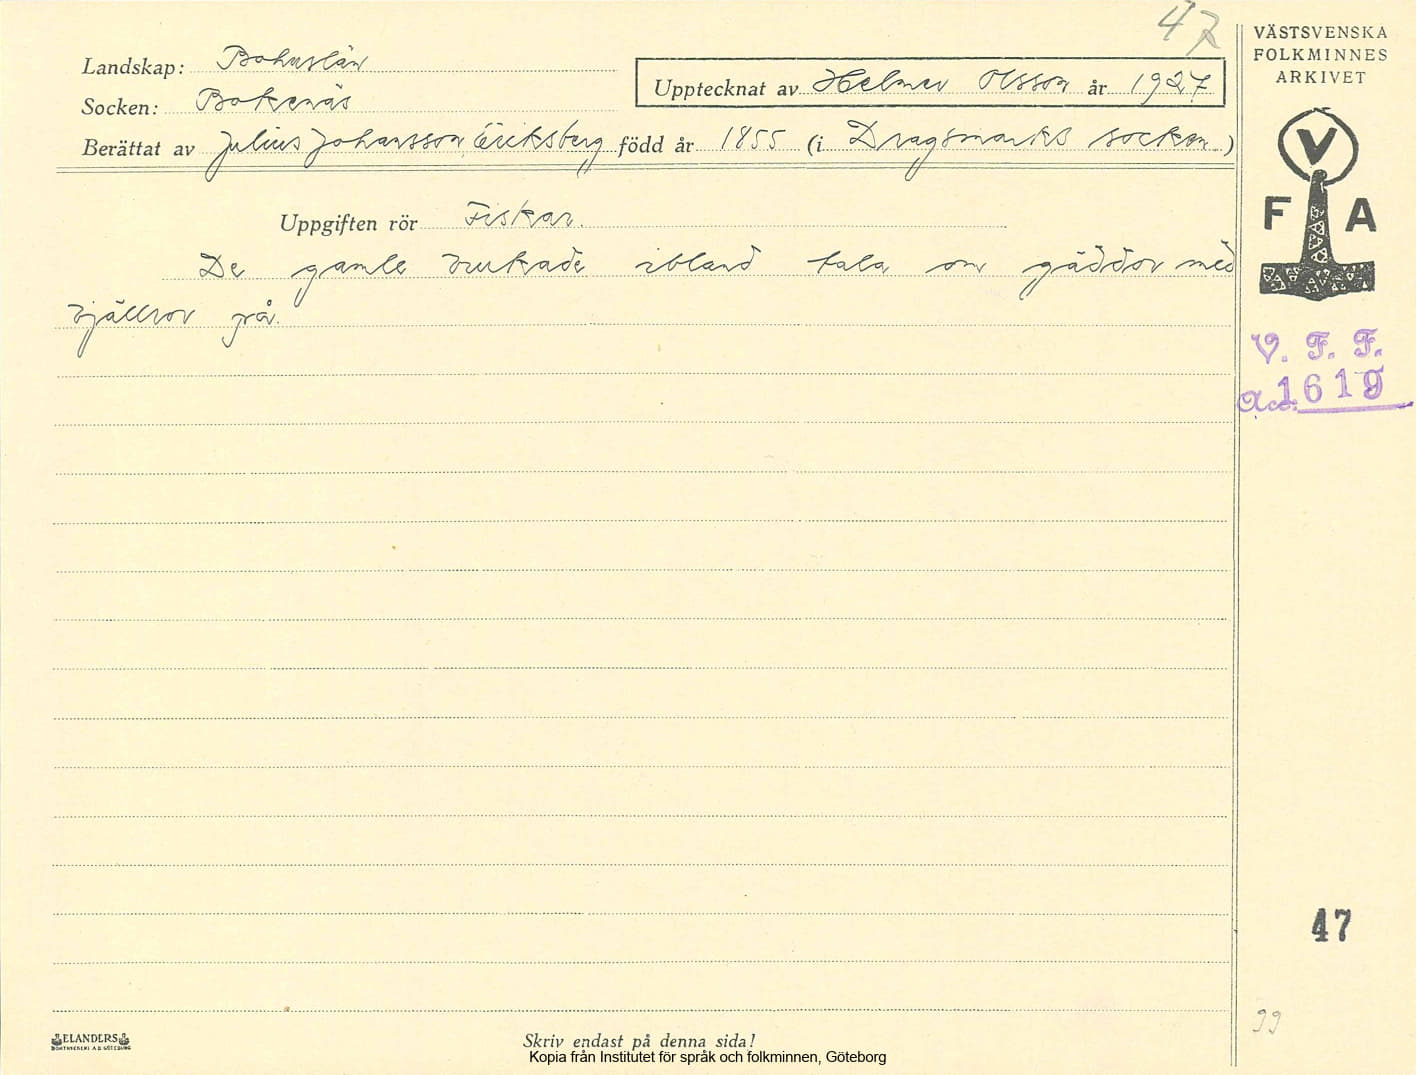 47
Landskap: Bohuslän
Socken: Bokenäs
Upptecknat av Helmer Olsson år 1927
Berättat av Julius Johansson, Eriksberg född år 1855 (i Dragsmarks socken)
Uppgiften rör Fiskar.
De gamle brukade ibland tala om gäddor med
bjällror på.
VÄSTSVENSKA
FOLKMINNES
ARKIVET
V
F A
V. F. F.
Acc. 1619
47
99
ELANDERS
BOKTRYCKERI A.B. GÖTEBORG
Skriv endast på denna sida!
Kopia från Institutet för språk och folkminnen, Göteborg